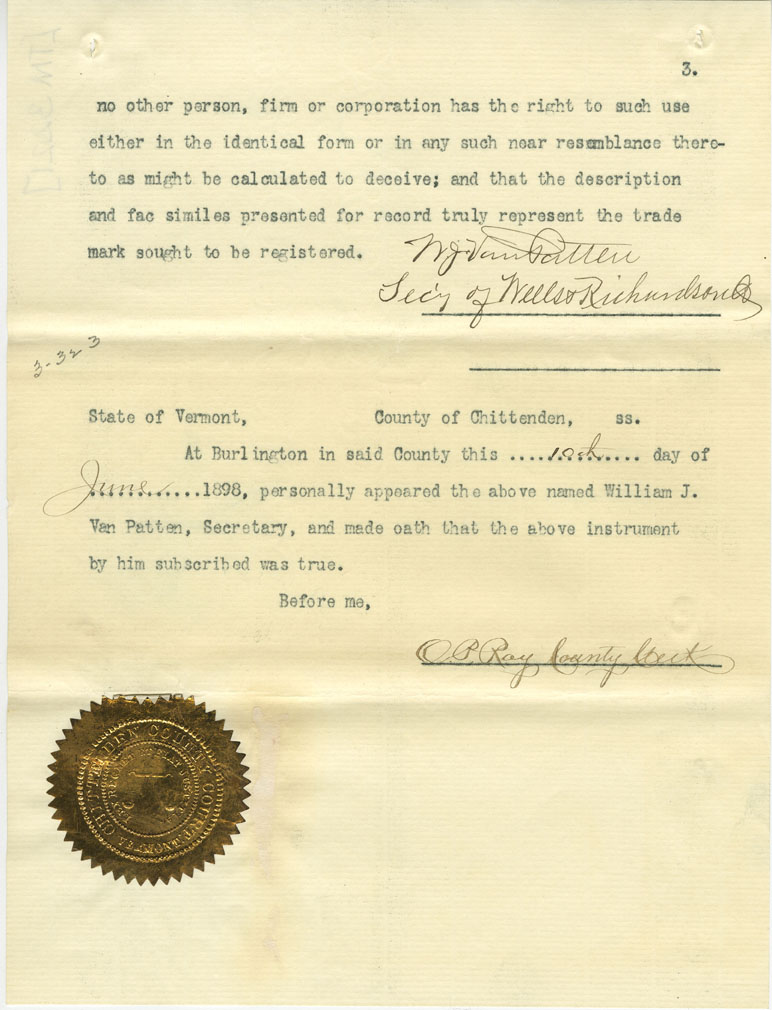 3.
no other person, firm or corporation has the right to such use
either in the identical form or in any such near resemblance there-
to as might be calculated to deceive; and that the description
and fac similes presented for record truly represent the trade
mark sought to be registered.
W J Van Patten
Sec'y of Wells & Richardson Co
3-323
State of Vermont, County of Chittenden, ss.
At Burlington in said County this ....10th...... day of
June..........1898, personally appeared the above named William J.
Van Patten, Secretary, and made oath that the above instrument
by him subscribed was true.
Before me,
O. P. Ray County Clerk
CHITTENDEN COUNTY COURT VERMONT